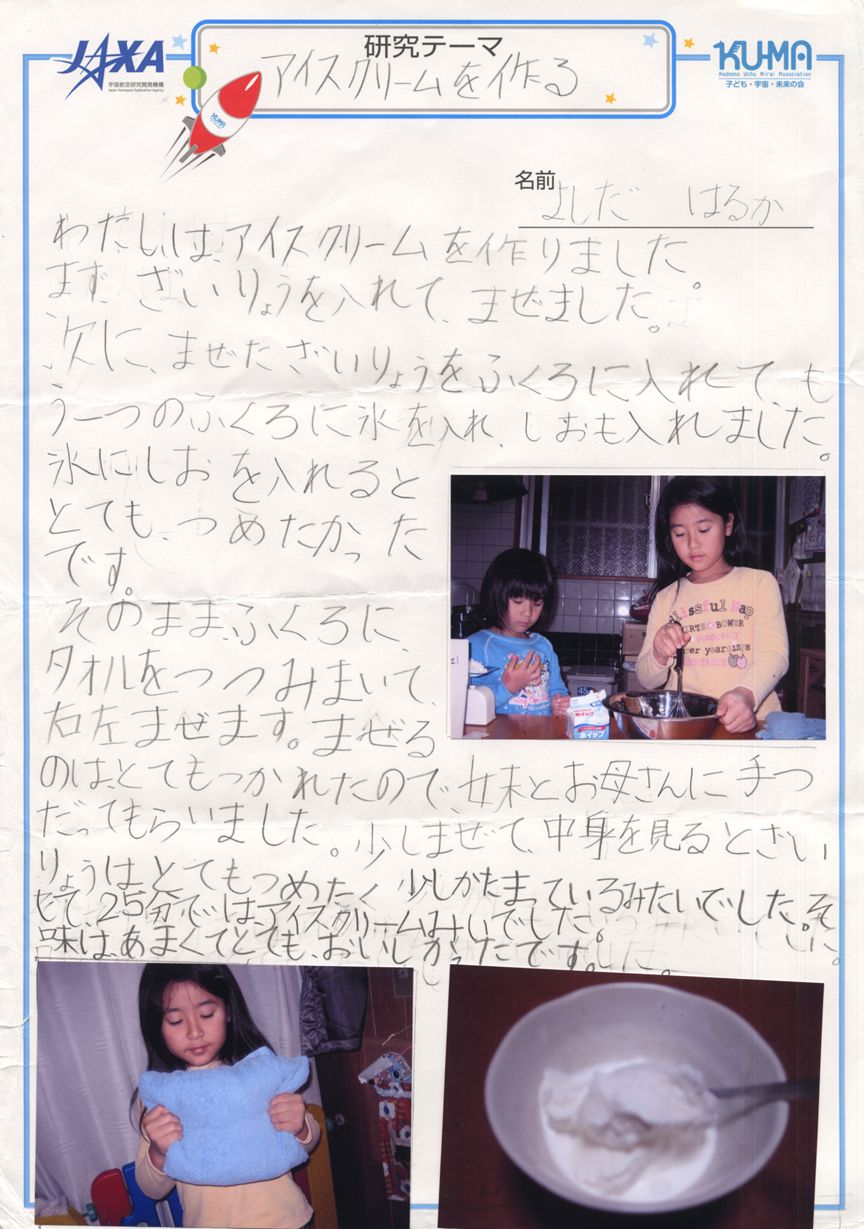 JAXA
宇宙航空研究開発機構
Japan Aerospace Exploration Agency
研究テーマ
アイスクリームを作る
KU-MA
Kodomo Uchu Mirai Association
子ども・宇宙・未来の会
KUMA
名前 よしだ はるか
わたしは、アイスクリームを作りました。
まず、ざいりょうを入れて、まぜました。
次に、まぜたざいりょうをふくろに入れて、も
う一つのふくろに氷を入れ、しおも入れました。
氷にしおを入れると
とても、つめたかった
です。
そのまま、ふくろに、
タオルをつつみまいて、
右左まぜます。まぜる
のは、とてもつかれたので、妹とお母さんに手つ
だってもらいました。少しまぜて、中身を見るとざい
りょうはとてもつめたく少しかたまっているみたいでした。そ
して、25分ではアイスクリームみいでした。
味は、あまくてとても、おいしかったです。
Blissful Nap
BOWER
ホイップ